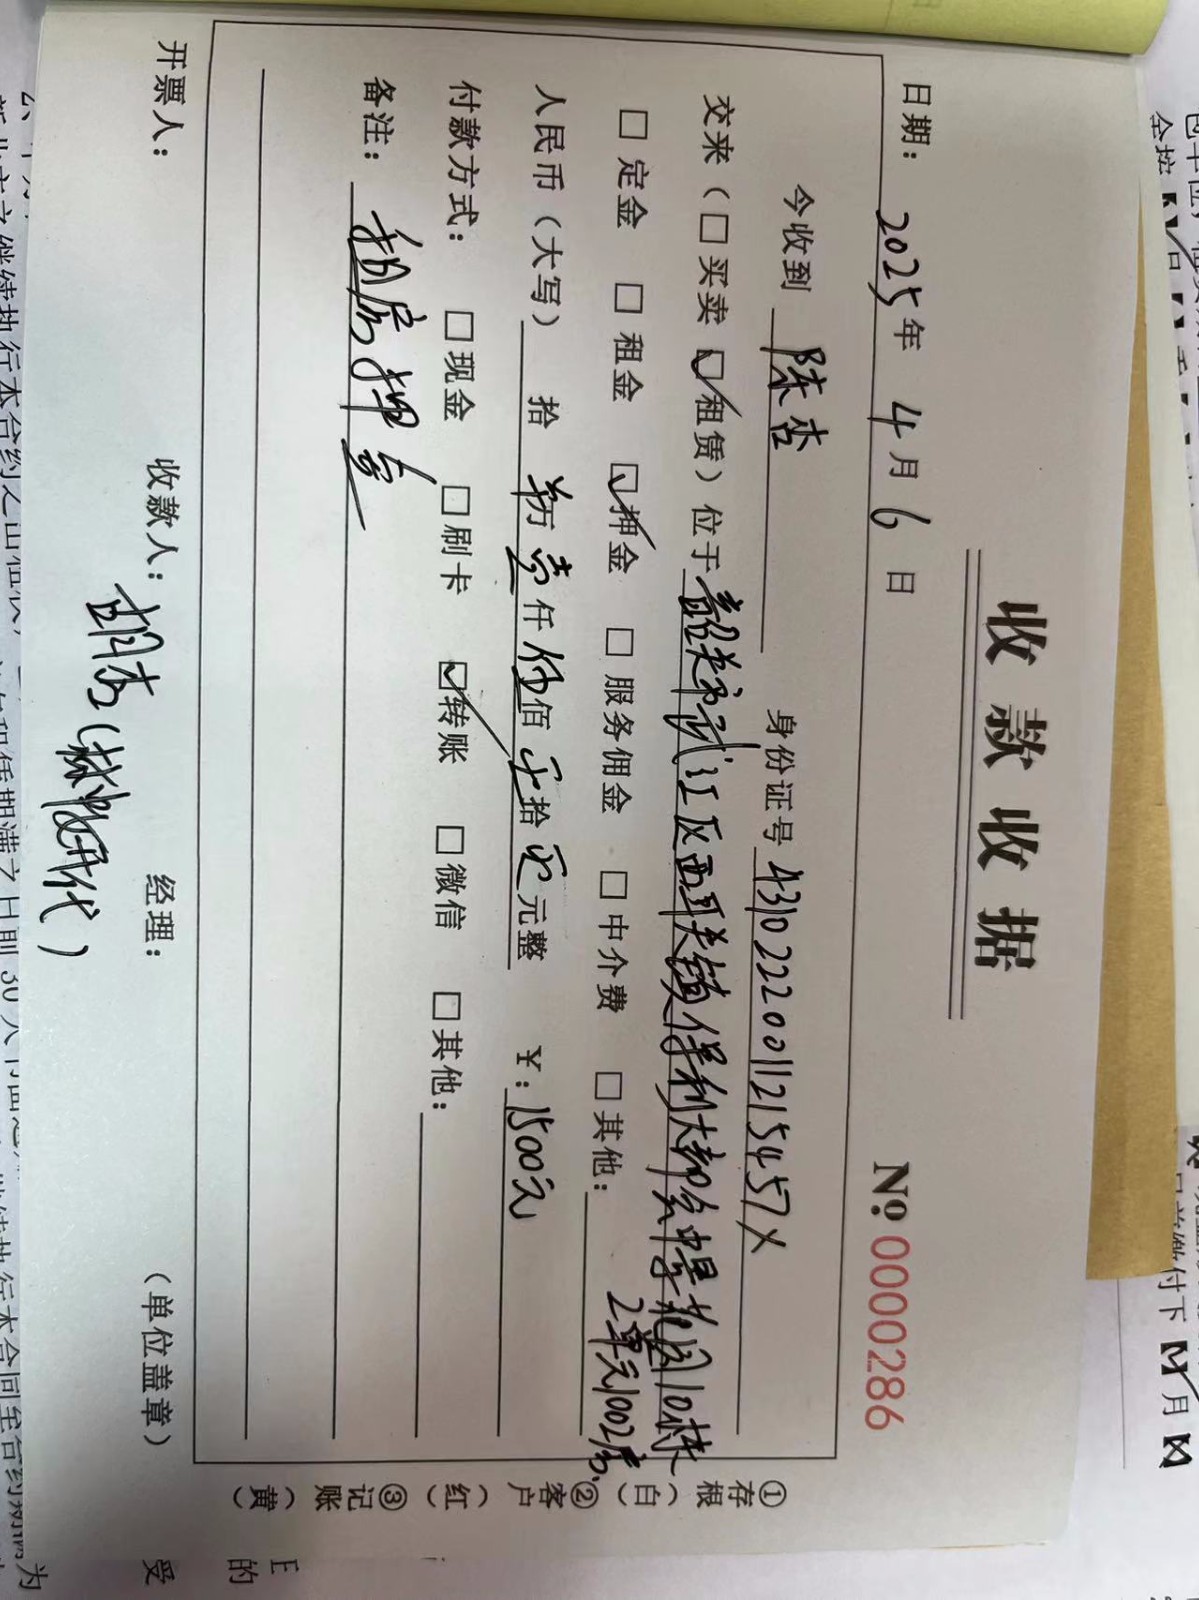 收款收据
日期：2025年4月6日 №00002886
今收到 陈杏 身份证号 43102220011215457X
交来（□买卖 ☑租赁）位于韶关市武江区西联镇保利大都会中景花园10栋
2单元1002房
□定金 □租金 ☑押金 □服务佣金 □中介费 □其他：
人民币（大写） 拾 万 壹仟伍佰零拾零元整 ￥：1500元
付款方式： □现金 □刷卡 ☑转账 □微信 □其他：
备注： 租房押金
开票人： 收款人： 经理： （单位盖章）
①存根（白） ②客户（红） ③记账（黄）